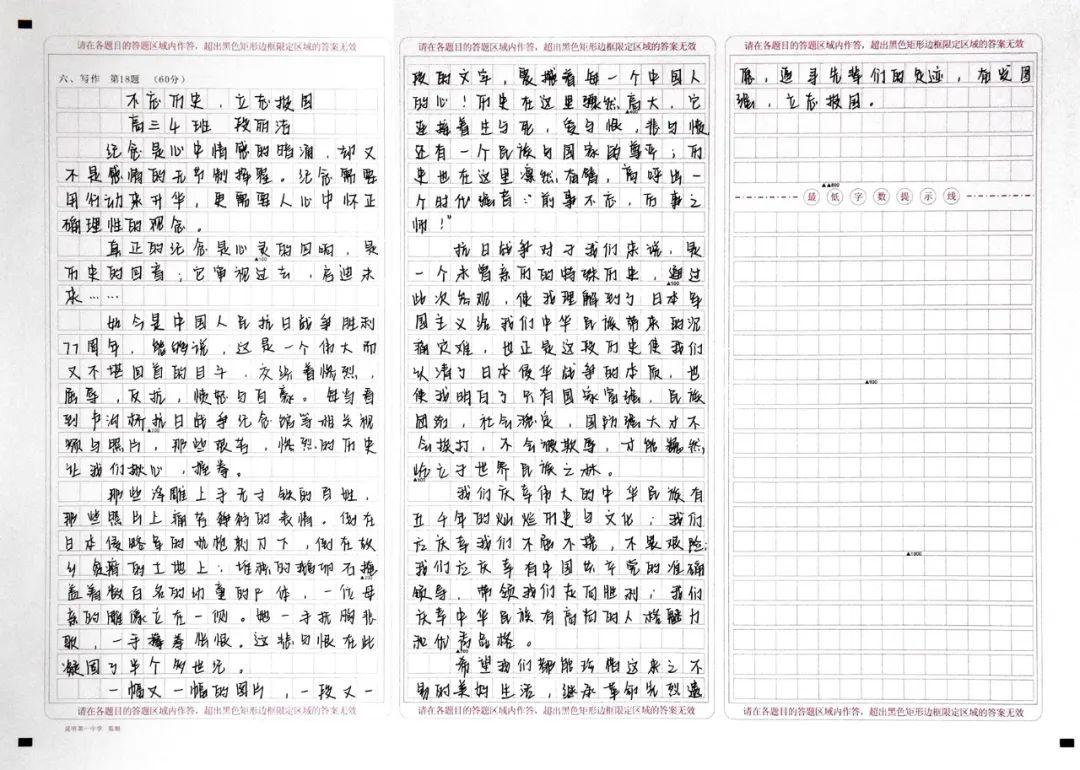 请在各题目的答题区域内作答，超出黑色矩形边框限定区域的答案无效
六、写作 第18题 （60分）
不忘历史，立志报国
高三4班 段丽洁
纪念是心中情感的暗涌，却又
不是感情的无节制挥霍。纪念需要
用行动来升华，更需要人心中怀正
确理性的观念。
真正的纪念是心灵的回响，是
▲100
历史的回音；它审视过去，启迪未
来……
如今是中国人民抗日战争胜利
77周年，能够说，这是一个伟大而
又不堪回首的日子，交织着惨烈，
屈辱，反抗，愤怒与自豪。每当看
到卢沟桥抗日战争纪念馆等相关视
频与照片，那些艰苦，惨烈的历史
让我们揪心，握拳。
那些浮雕上手无寸铁的百姓，
那些照片上痛苦狰狞的表情。倒在
日本侵略军的机枪刺刀下，倒在故
乡贫瘠的土地上；堆积的鹅卵石掩
盖着数百名的幼童的尸体，一位母
亲的雕像立在一侧。她一手抚胸悲
歌，一手攥着仇恨。这悲与恨在此
凝固了半个多世纪。
一幅又一幅的图片，一段又一
请在各题目的答题区域内作答，超出黑色矩形边框限定区域的答案无效
昆明第一中学 监制
请在各题目的答题区域内作答，超出黑色矩形边框限定区域的答案无效
段的文字，震撼着每一个中国人
的心！历史在这里骤然高大，它
连接着生与死，爱与恨，悲与愤
还有一个民族与国家的尊严；历
史也在这里凛然有声，高呼出一
个时代强音："前事不忘，后事之
师！"
抗日战争对于我们来说，是
一个永留亲历的特殊历史，通过
此次参观，使我理解到了日本军
国主义给我们中华民族带来的沉
痛灾难，也正是这段历史使我们
认清了日本侵华战争的本质，也
使我明白了只有国家富强，民族
团结，社会稳定，国防强大才不
会挨打，不会被欺辱，才能巍然
屹立于世界民族之林。
我们庆幸伟大的中华民族有
五千年的灿烂历史与文化；我们
应庆幸我们不屈不挠，不畏艰险；
我们应庆幸有中国共产党的准确
领导，带领我们走向胜利；我们
庆幸中华民族有高尚的人格魅力
和优秀品格。
▲700
希望我们都能珍惜这来之不
易的美好生活，继承革命先烈遗
请在各题目的答题区域内作答，超出黑色矩形边框限定区域的答案无效
请在各题目的答题区域内作答，超出黑色矩形边框限定区域的答案无效
愿，追寻先辈们的足迹，奋发图
强，立志报国。
▲▲800
最低字数提示线
▲900
▲1000
请在各题目的答题区域内作答，超出黑色矩形边框限定区域的答案无效